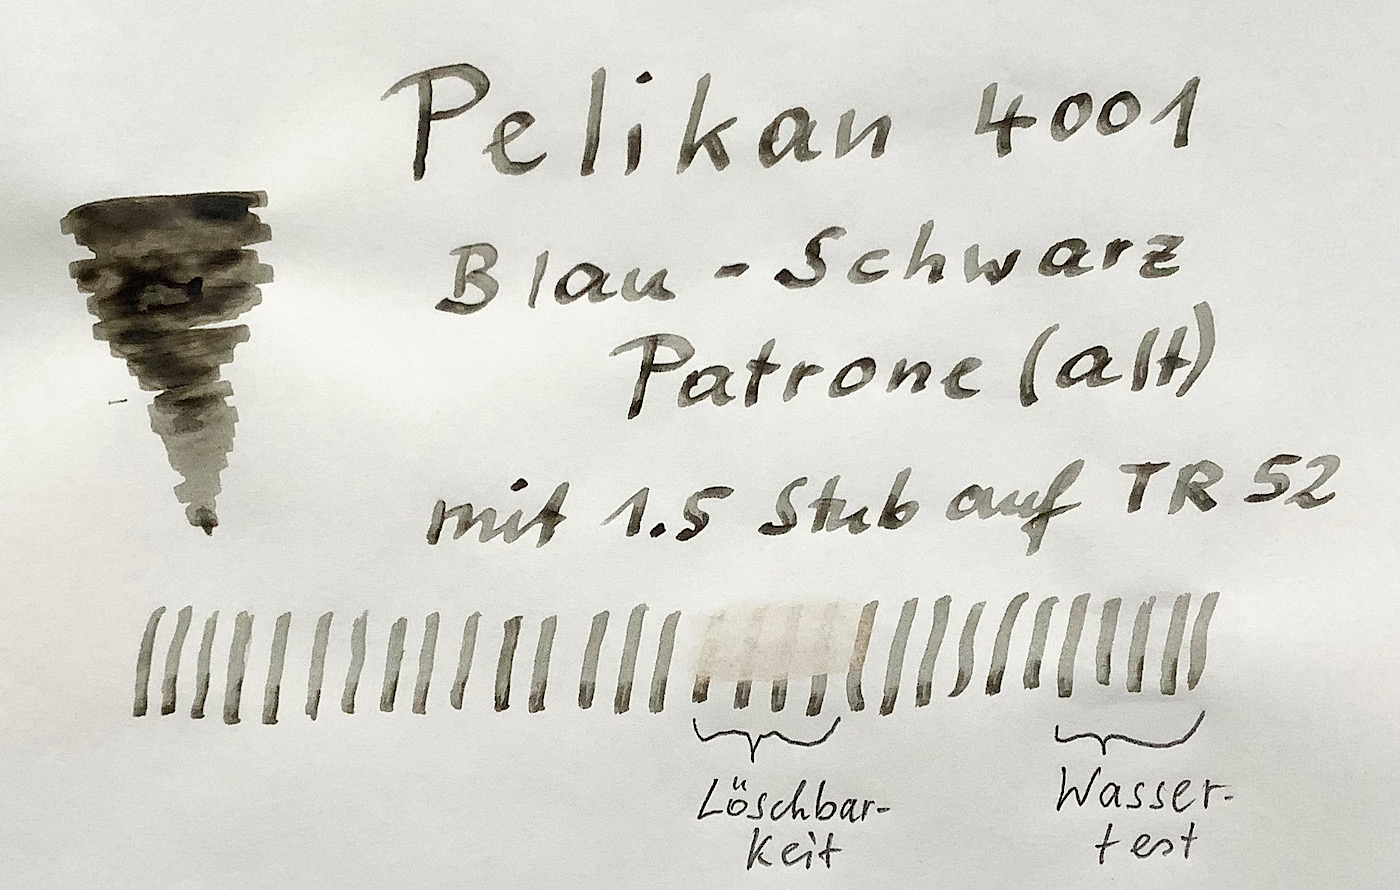 Pelikan 4001
Blau-Schwarz
Patrone (alt)
mit 1.5 Stub auf TR 52
Löschbar-
keit
Wasser-
test